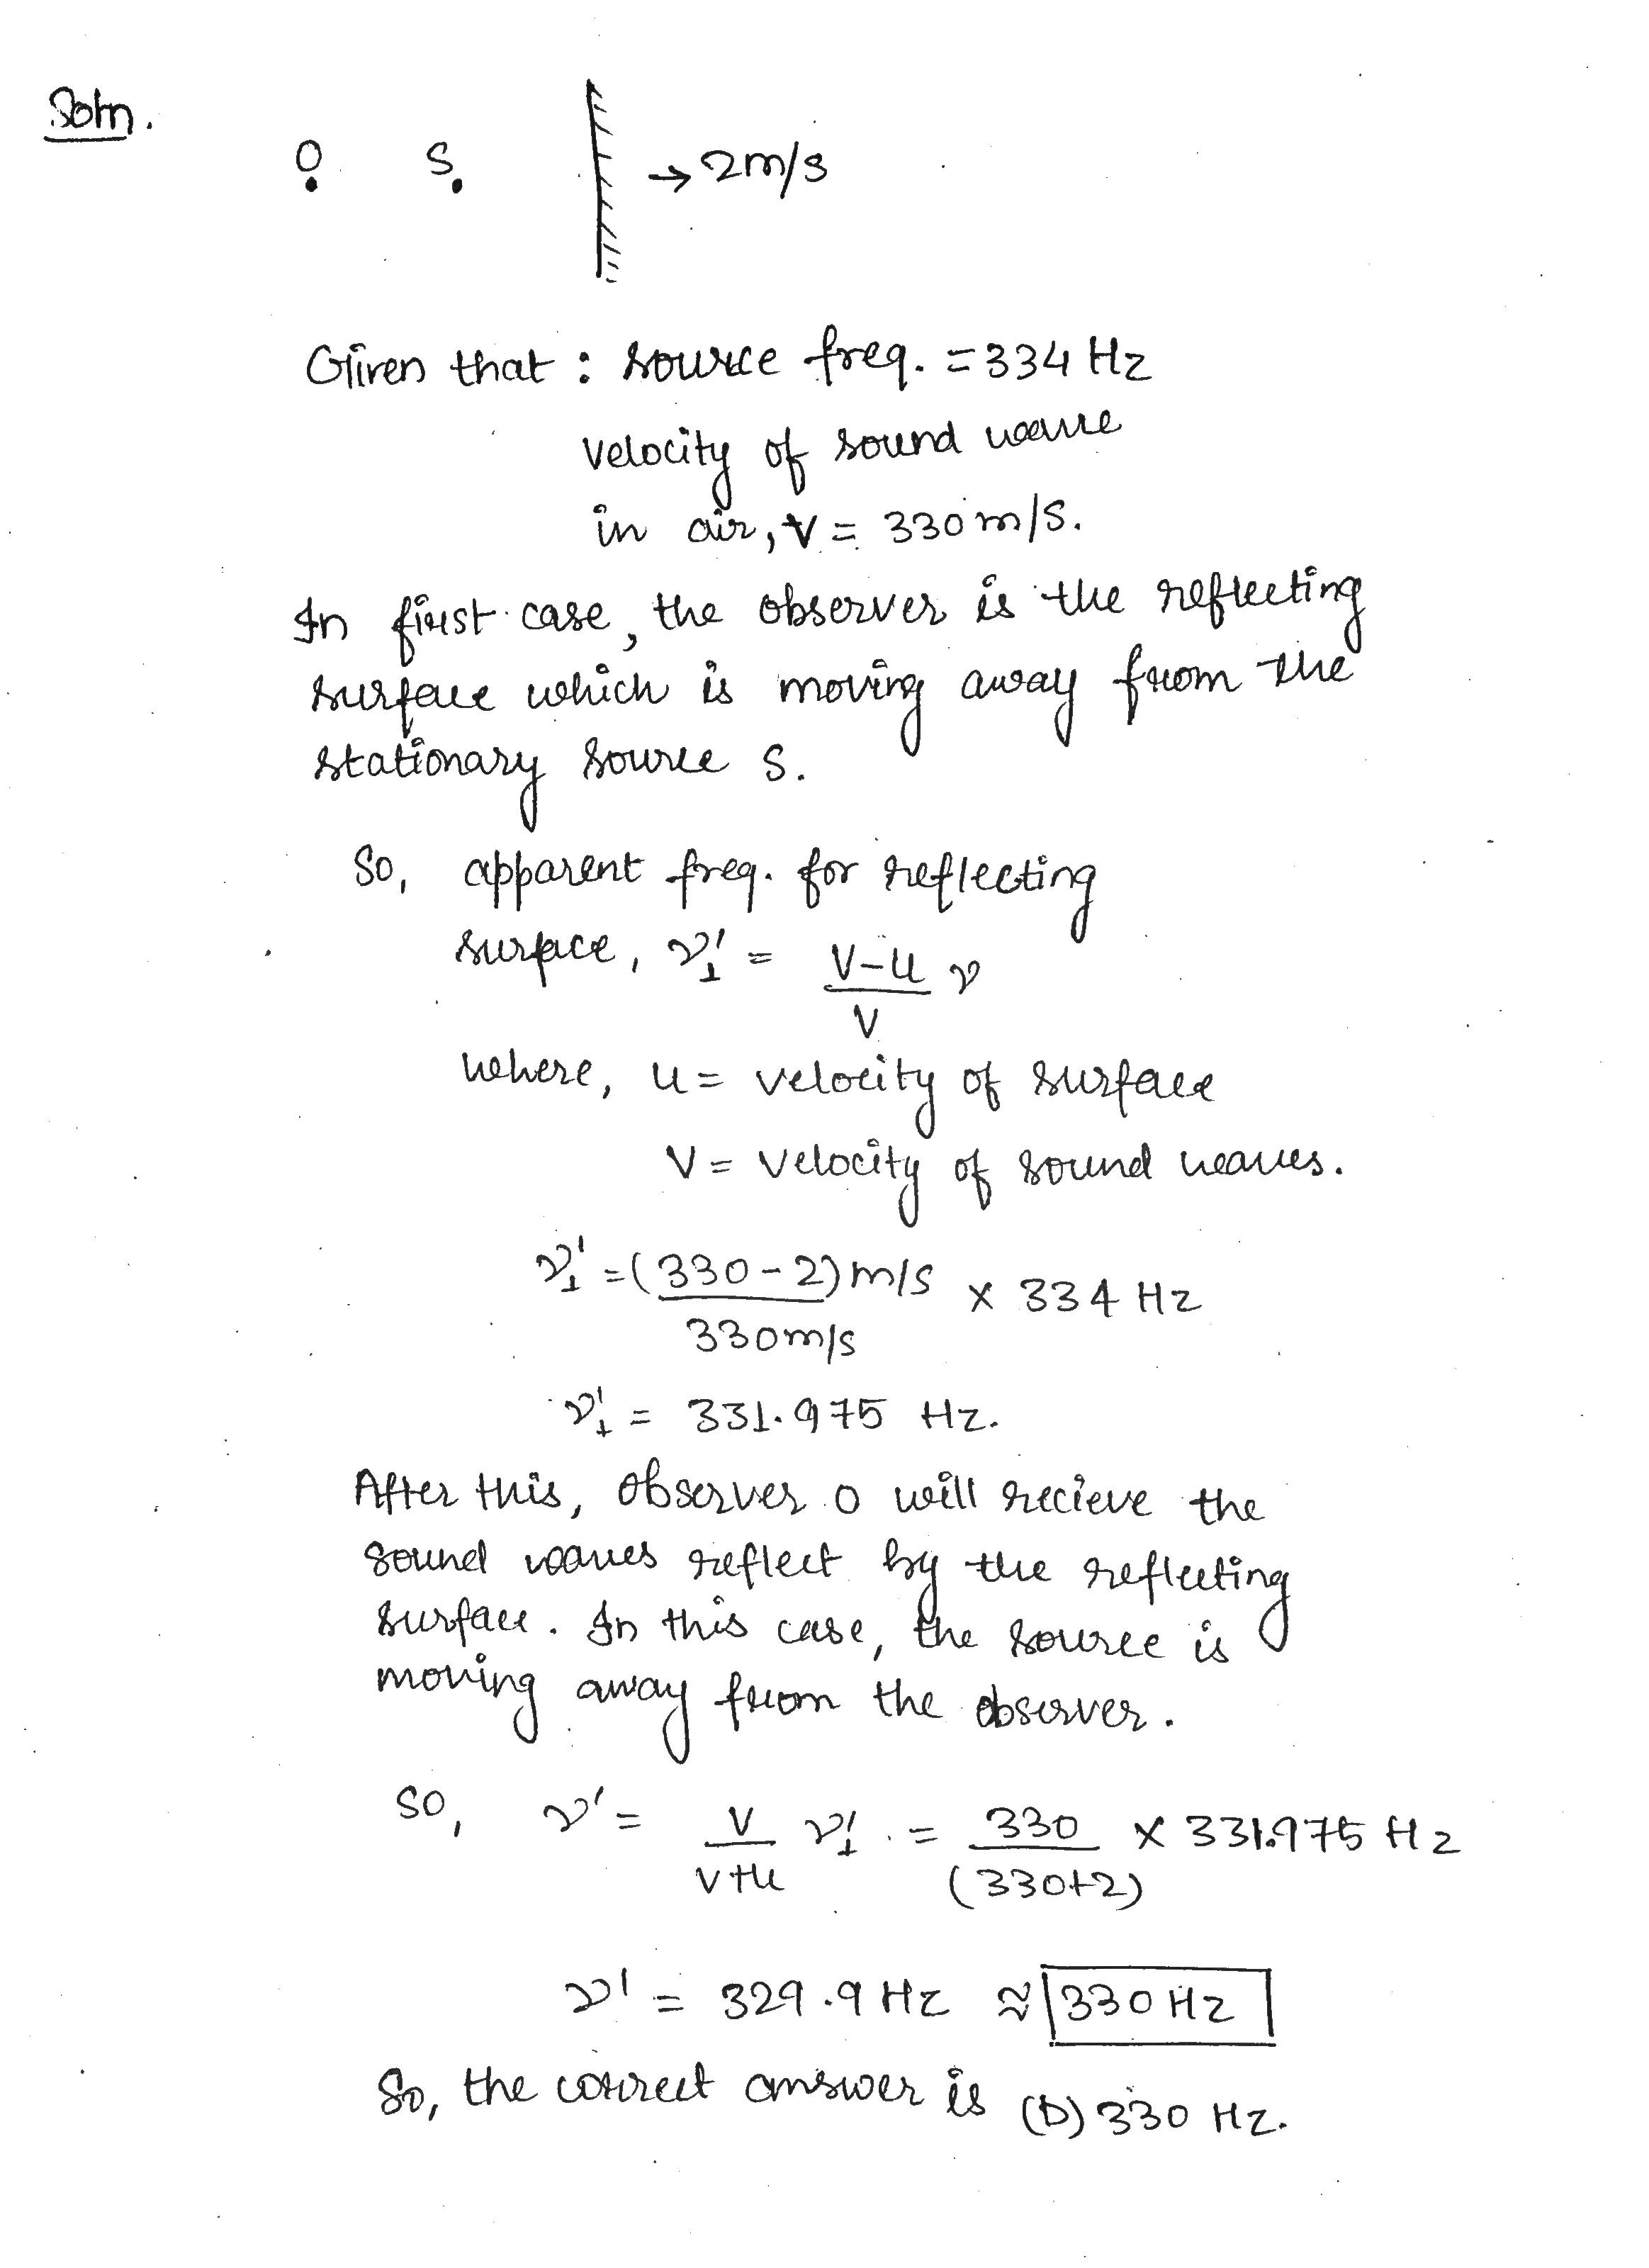 Soln.
O S → 2m/s
Given that : source freq. = 334 Hz
velocity of sound wave
in air, v = 330 m/s.
In first case, the observer is the reflecting
surface which is moving away from the
stationary source S.
So, apparent freq. for reflecting
surface, ν₁' = V-u/V ν
where, u = velocity of surface
V = velocity of sound waves.
ν₁' = (330-2) m/s / 330 m/s × 334 Hz
ν₁' = 331.975 Hz.
After this, observer O will recieve the
sound waves reflect by the reflecting
surface. In this case, the source is
moving away from the observer.
So, ν' = V/V+u ν₁' = 330/(330+2) × 331.975 Hz
ν' = 329.9 Hz ≈ 330 Hz
So, the correct answer is (D) 330 Hz.